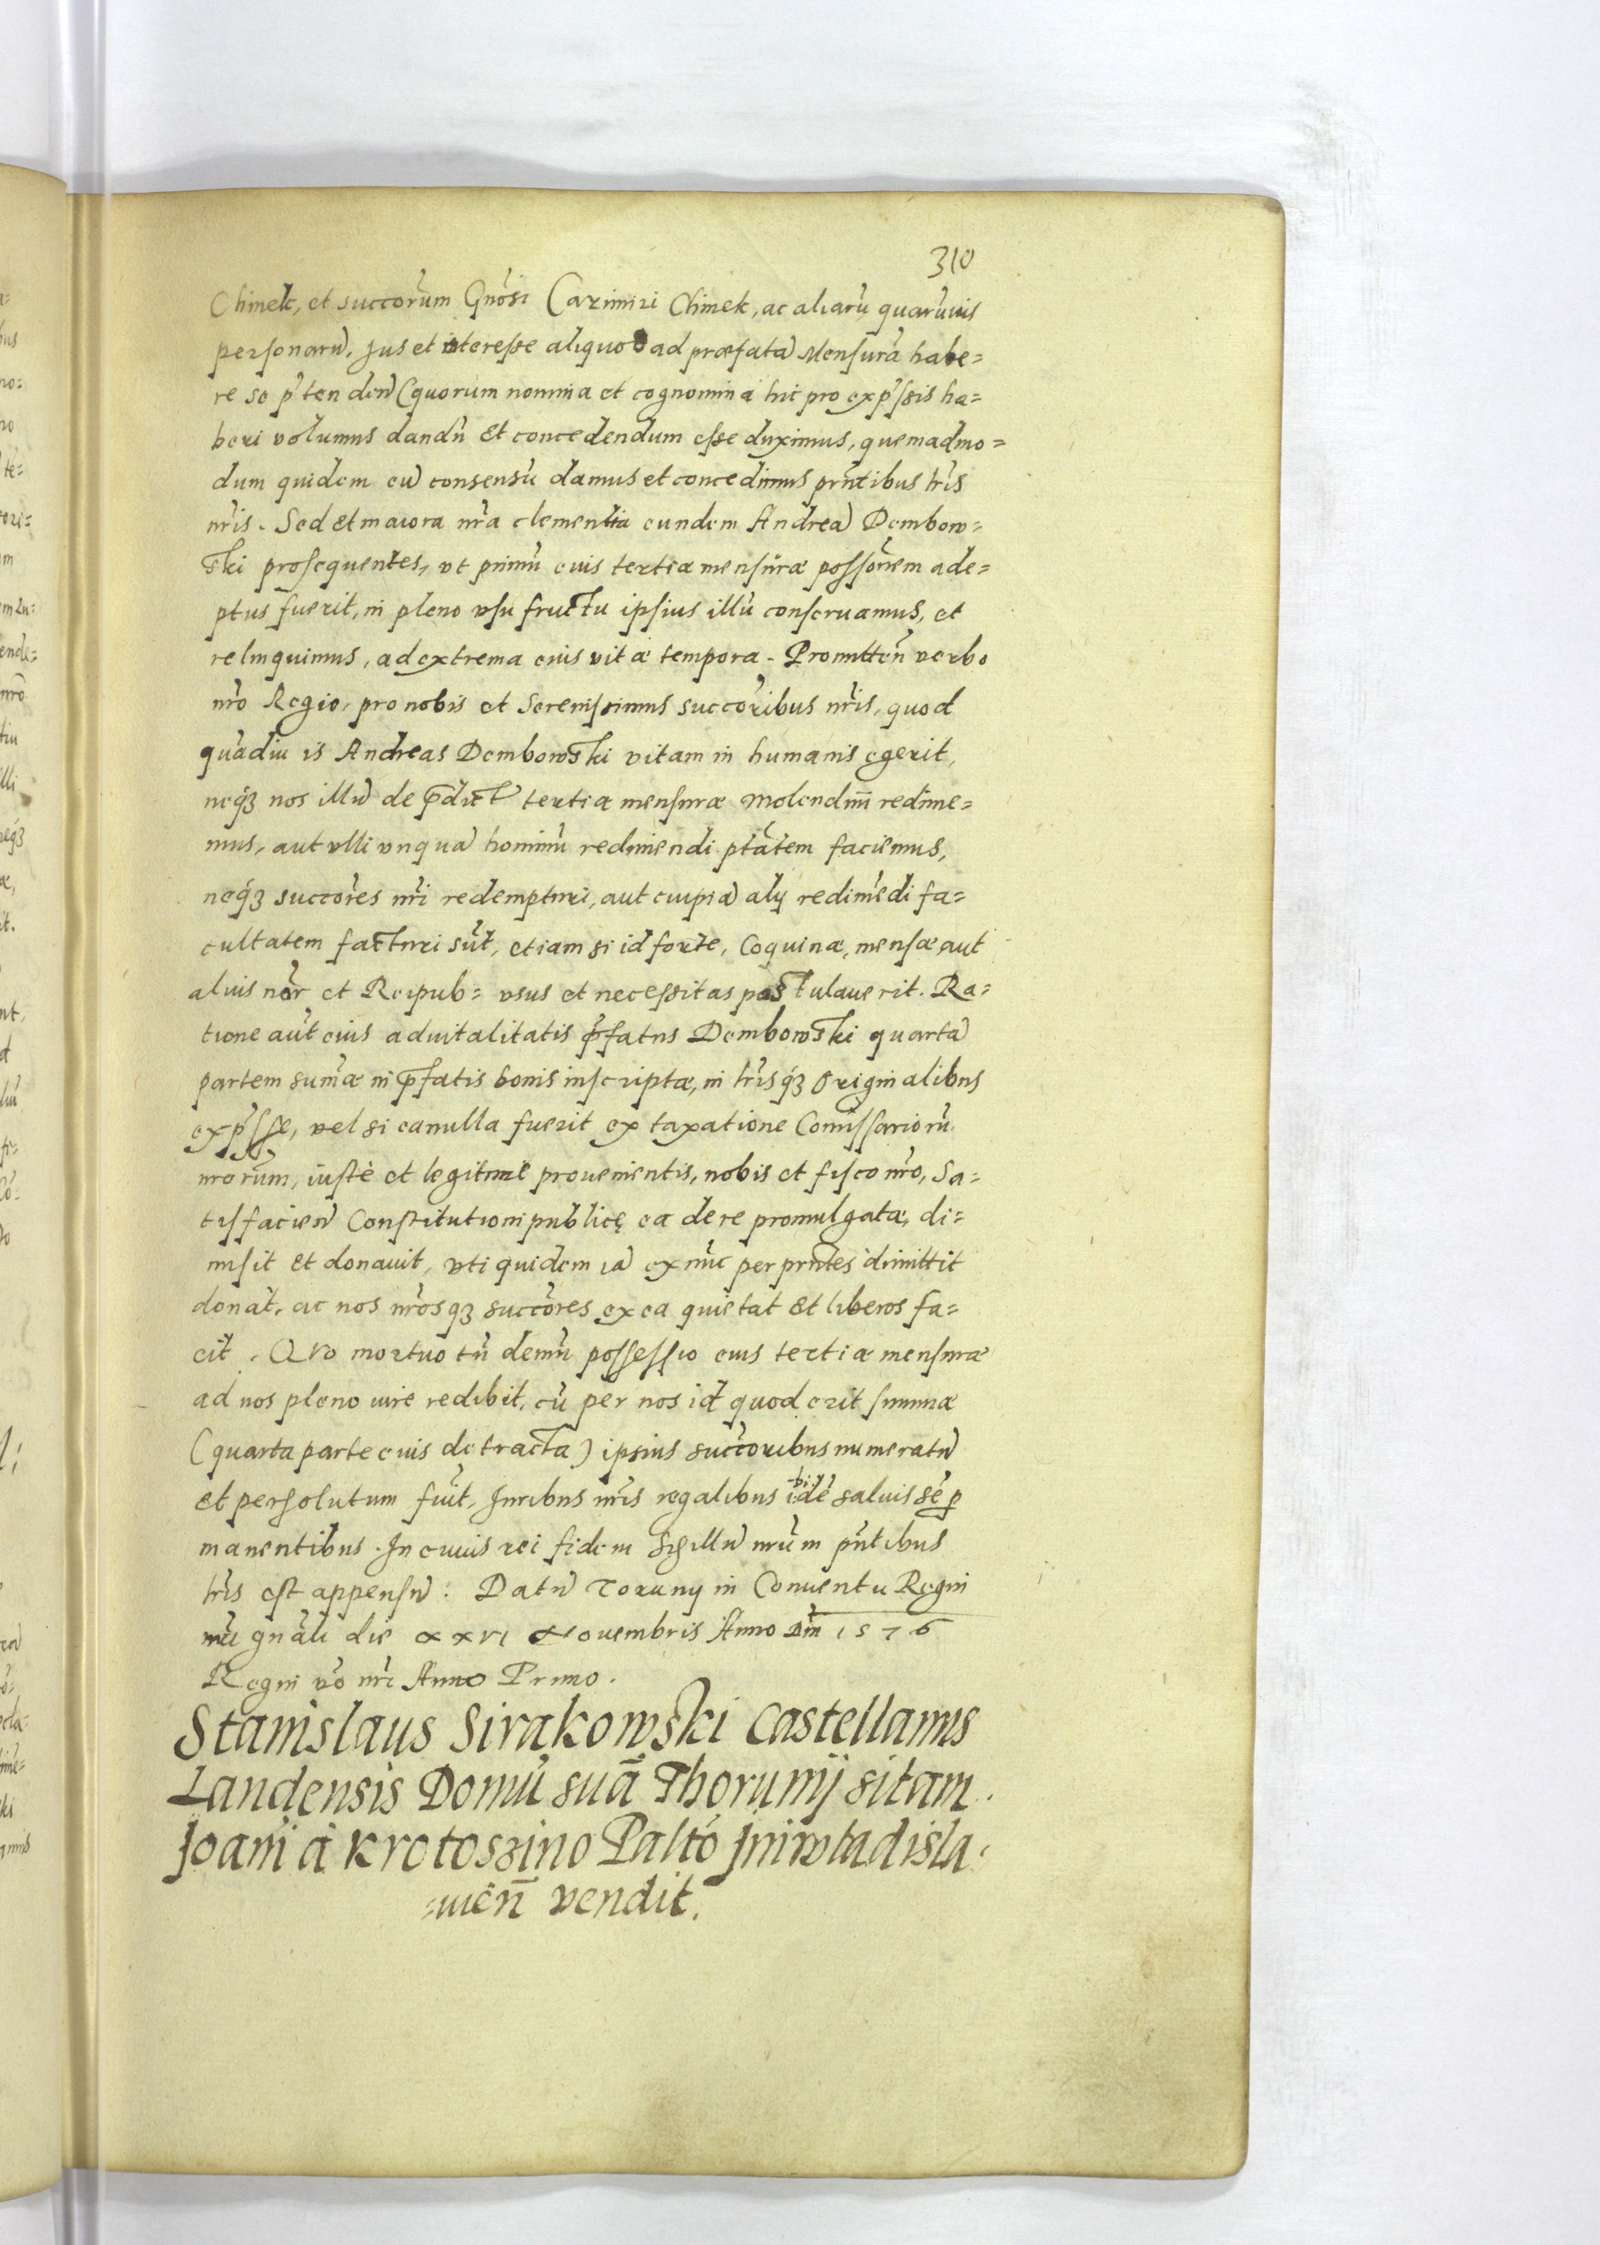 310
Chinek, et succorum Gnosi Cazimiri Chinek, ac aliarũ quarũuis
personarũ, Jus et interesse aliquod ad præfatã Mensurã habe=
re se p̃tendeñ (quorum nomina et cognomina hic pro exp̃ssis ha=
beri volumus dandũ et concedendum esse duximus, quemadmo=
dum quidem eũ consensũ damus et concedimus prñtibus lr̃is
nr̃is. Sed et maiora nr̃a clementia eundem Andreã Dembow=
ski prosequentes, vt primũ eius tertiæ mensuræ possõnem ade=
ptus fuerit, in pleno vsu fructu ipsius illũ conseruamus, et
relinquimus, ad extrema eius vitæ tempora. Promitteñ verbo
nr̃o Regio, pro nobis et Serenissimus succõribus nr̃is, quod
quãdiu is Andreas Dembowski vitam in humanis egerit,
neq́3 nos illũ de p̃dict tertiæ mensuræ Molendini redime=
mus, aut vlli vnquã hominũ redimendi ptãtem faciemus,
neq́3 succõres nr̃i redempturi, aut cuipiã alij redimẽdi fa=
cultatem facturi sũt, etiam si id forte, Coquinæ, mensæ, aut
alius nõr et Reipub= vsus et necessitas postulauerit. Ra=
tione aũt eius aduitalitatis p̃fatus Dembowski quartã
partem sum̃æ in p̃fatis bonis inscriptæ, in lr̃isq́3 Originalibus
exp̃ssæ, vel si ea nulla fuerit ex taxatione Com̃issariorũ
nrorũm, iustè et legitimè prouenientis, nobis et fisco nr̃o, Sa=
tisfacieñ Constitutioni publicę ea de re promulgatæ, di=
misit et donauit, vti quidem iã ex nũc per prñtes dimittit
donãt, ac nos nr̃osq3 succõres ex ea quietat et liberos fa=
cit. Quo mortuo tũ demũ possessio eius tertiæ mensuræ
ad nos pleno iure redibit, cũ per nos id quod erit summæ
(quarta parte eius detracta) ipsius succõribus numeratũ
et persolutum fuĩt, Juribus nr̃is regalibus ibidẽ saluis sẽp
manentibus. In cuius rei fidem Sigillũ nrũm pñtibus
lr̃is est appensũ. Datũ Toruny in Conuentu Regni
nr̃i gnãli die XXVI Nouembris Anno Dñi 1576
Regni võ nr̃i Anno Primo.
Stanislaus Sirakowski Castellanus
Landensis Domũ suã Thorunij sitam.
Joañi à Krotoszino Paltó Juniwladisla=
=uieñ vendit.